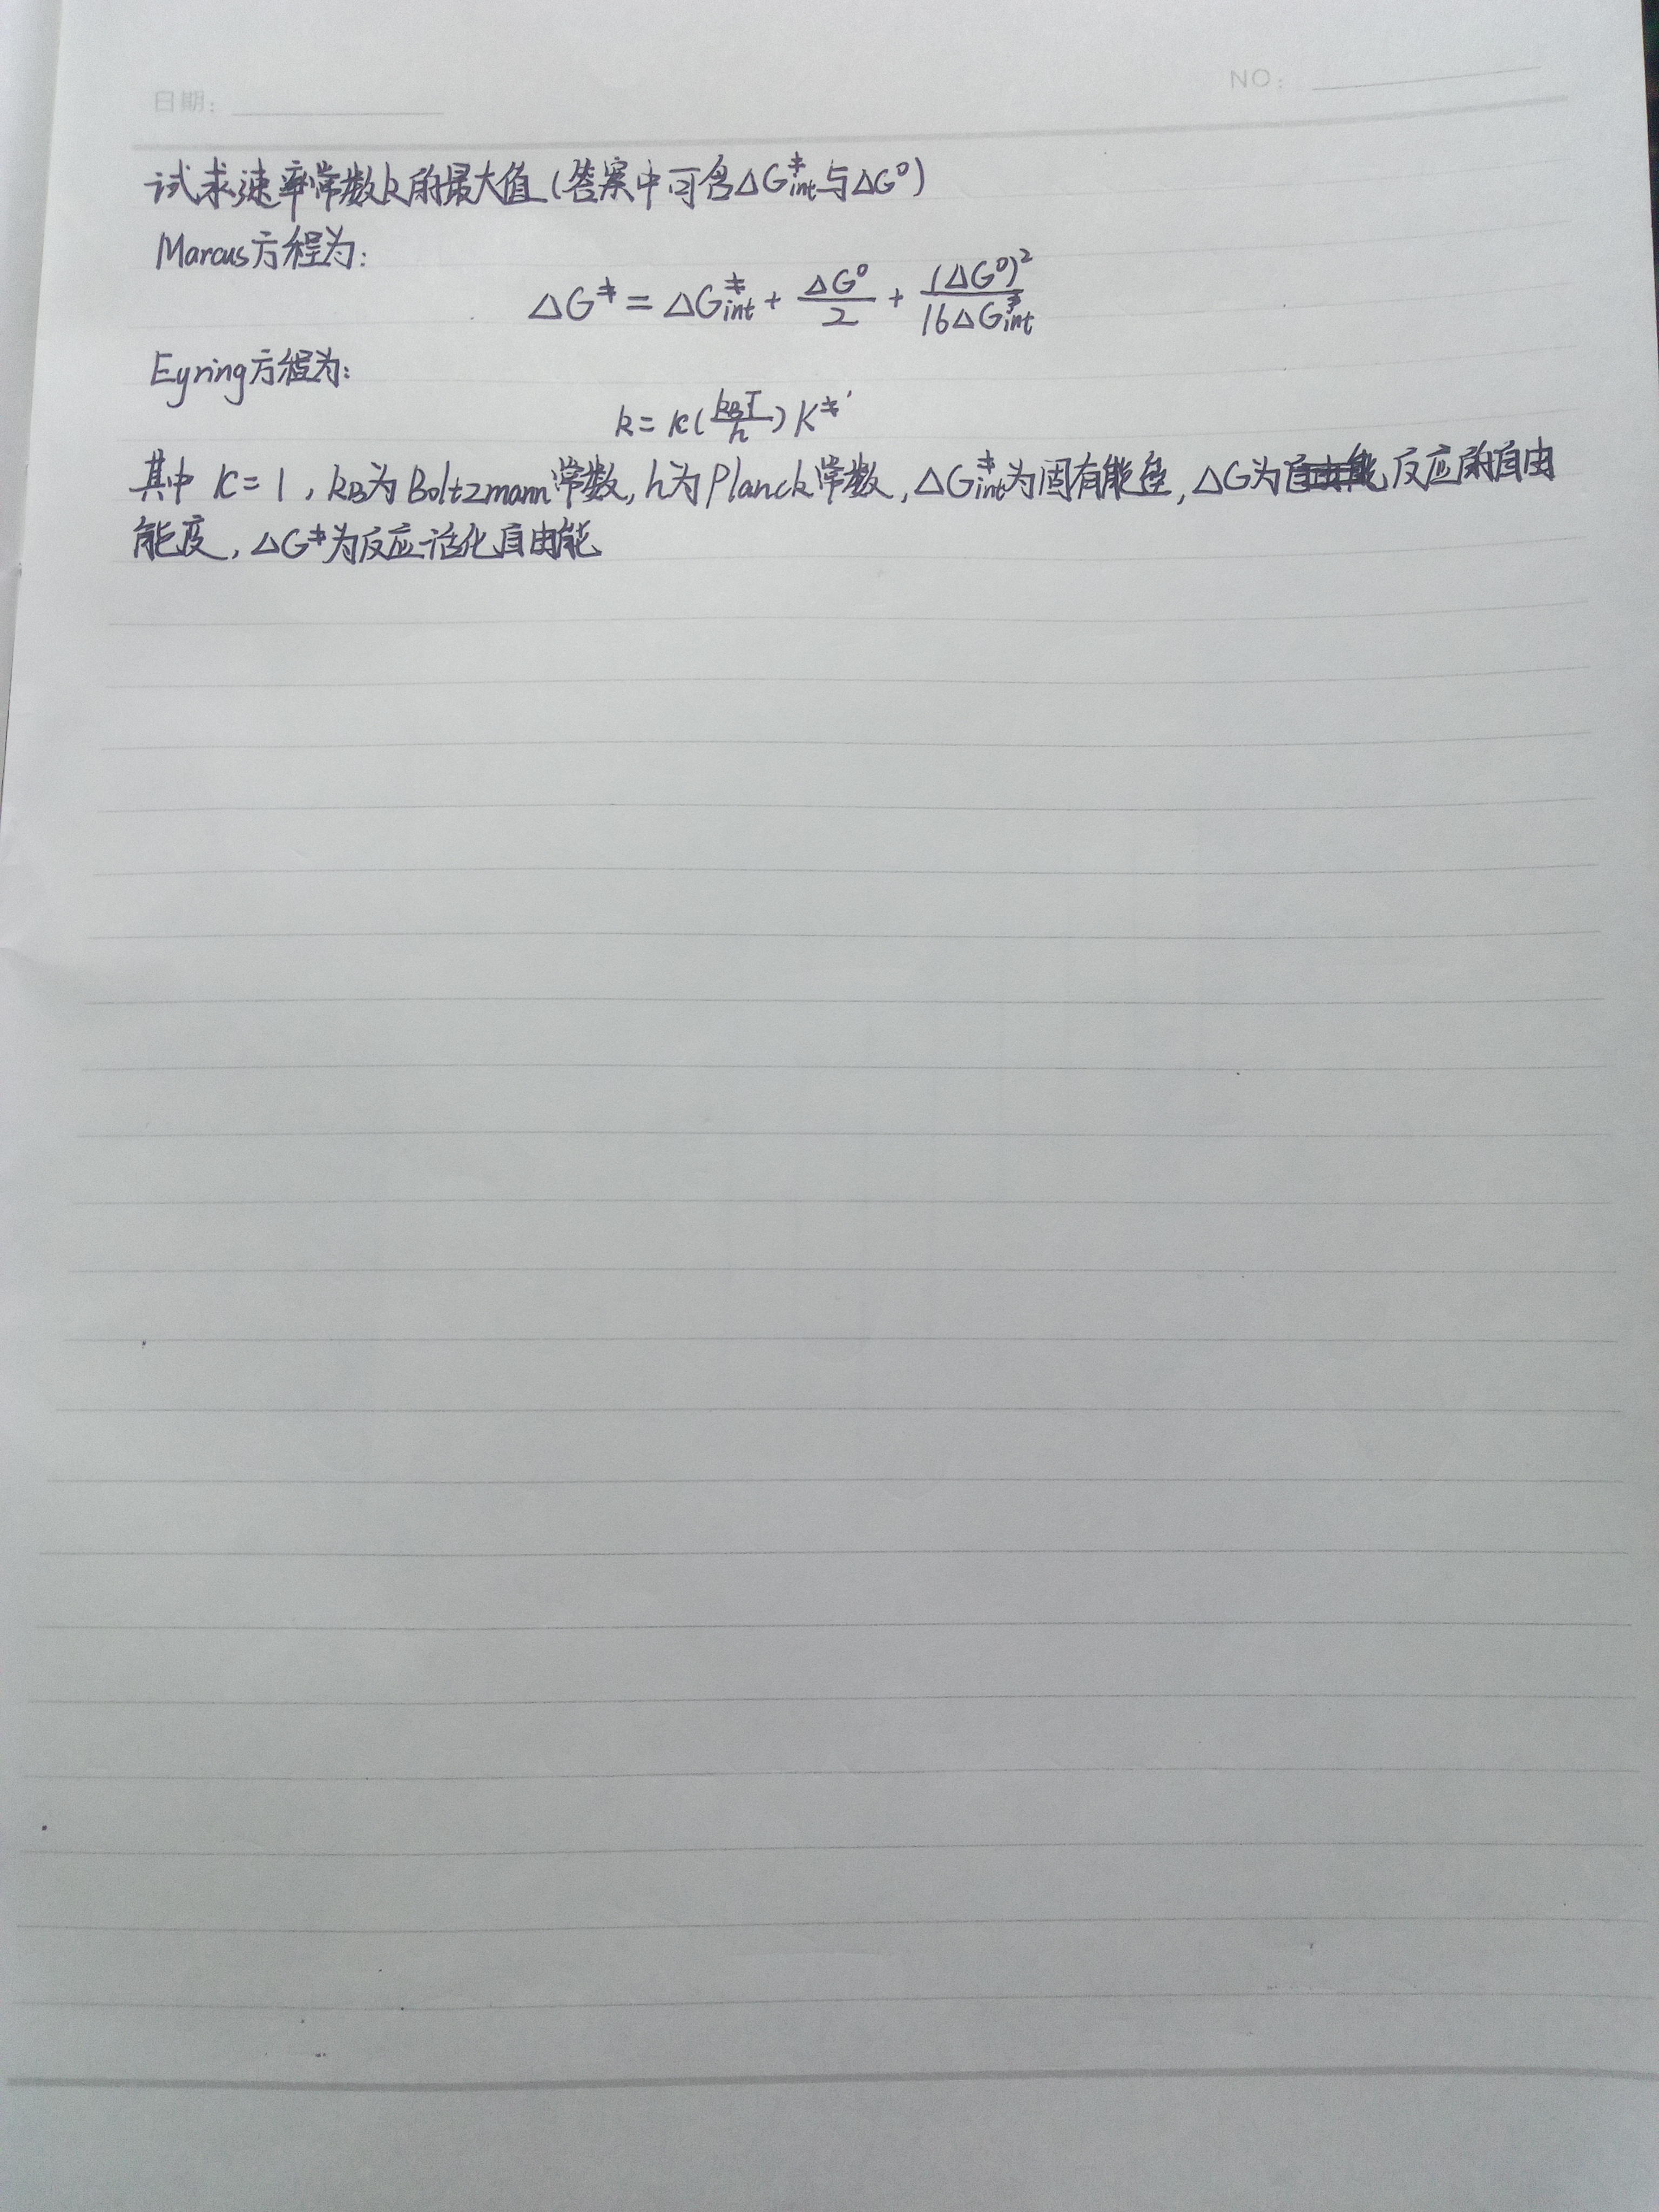 日期:
NO:
试求速率常数k的最大值(答案中可含ΔG‡int与ΔG⁰)
Marcus方程为:
ΔG‡ = ΔG‡int + ΔG⁰/2 + (ΔG⁰)²/16ΔG‡int
Eyring方程为:
k = κ(kBT/h)K‡'
其中 κ=1, kB为Boltzmann常数, h为Planck常数, ΔG‡int为固有能垒, ΔG为反应的自由
能度, ΔG‡为反应活化自由能